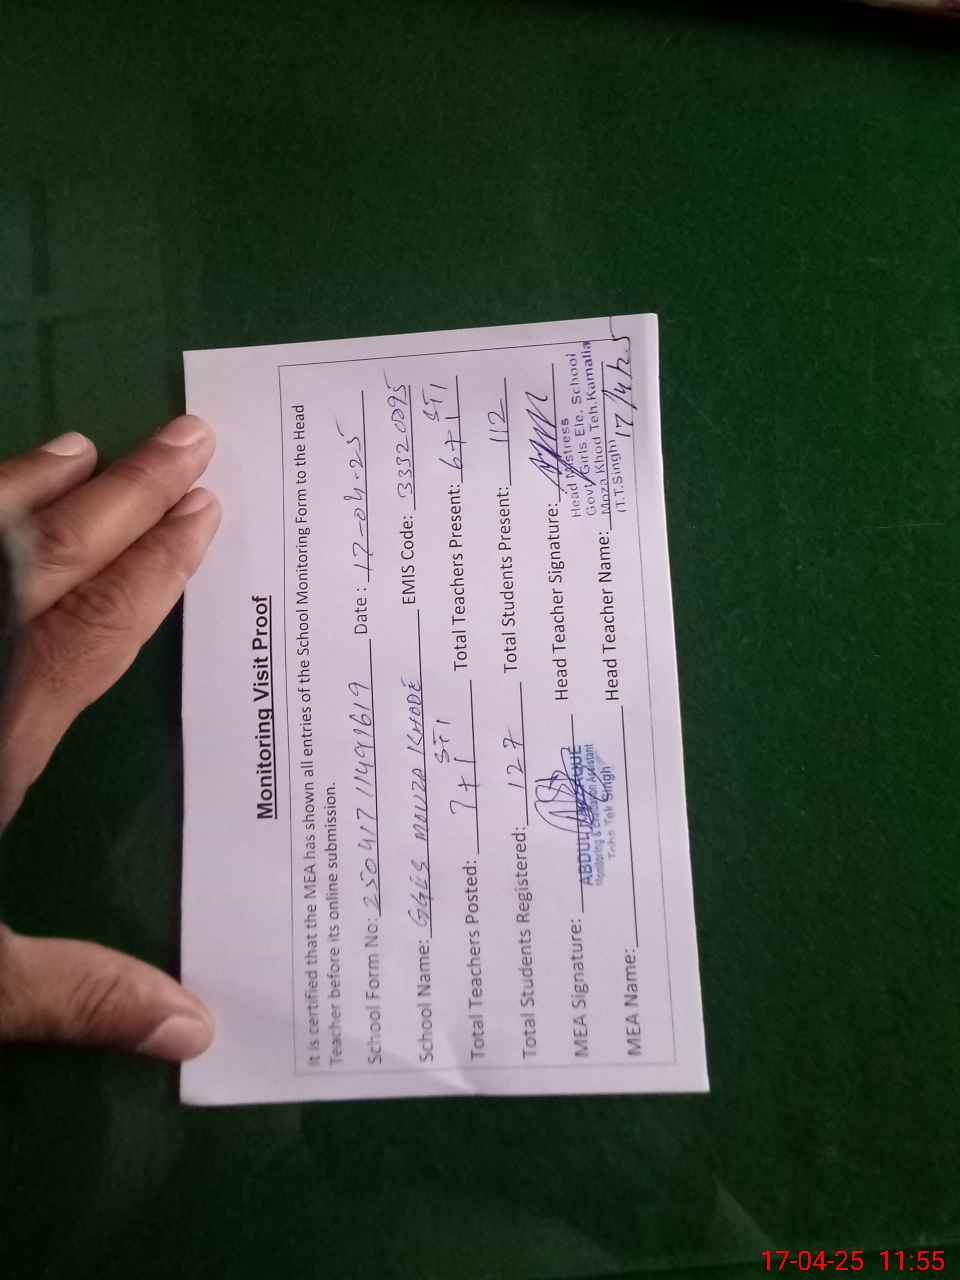 Monitoring Visit Proof
It is certified that the MEA has shown all entries of the School Monitoring Form to the Head
Teacher before its online submission.
School Form No: 250417 11491619 Date : 17-04-25
School Name: GGES MOUZA KHODE EMIS Code: 33320095
Total Teachers Posted: 7+1 STI Total Teachers Present: 6+1 STI
Total Students Registered: 127 Total Students Present: 112
MEA Signature: Head Teacher Signature:
ABDUL
Monitoring & Evaluation Assistant
Toba Tek Singh
Head Mistress
Govt. Girls Ele. School
Moza Khod Teh.Kamalia
(T.T.Singh)
MEA Name: Head Teacher Name:
17/4/25
17-04-25 11:55